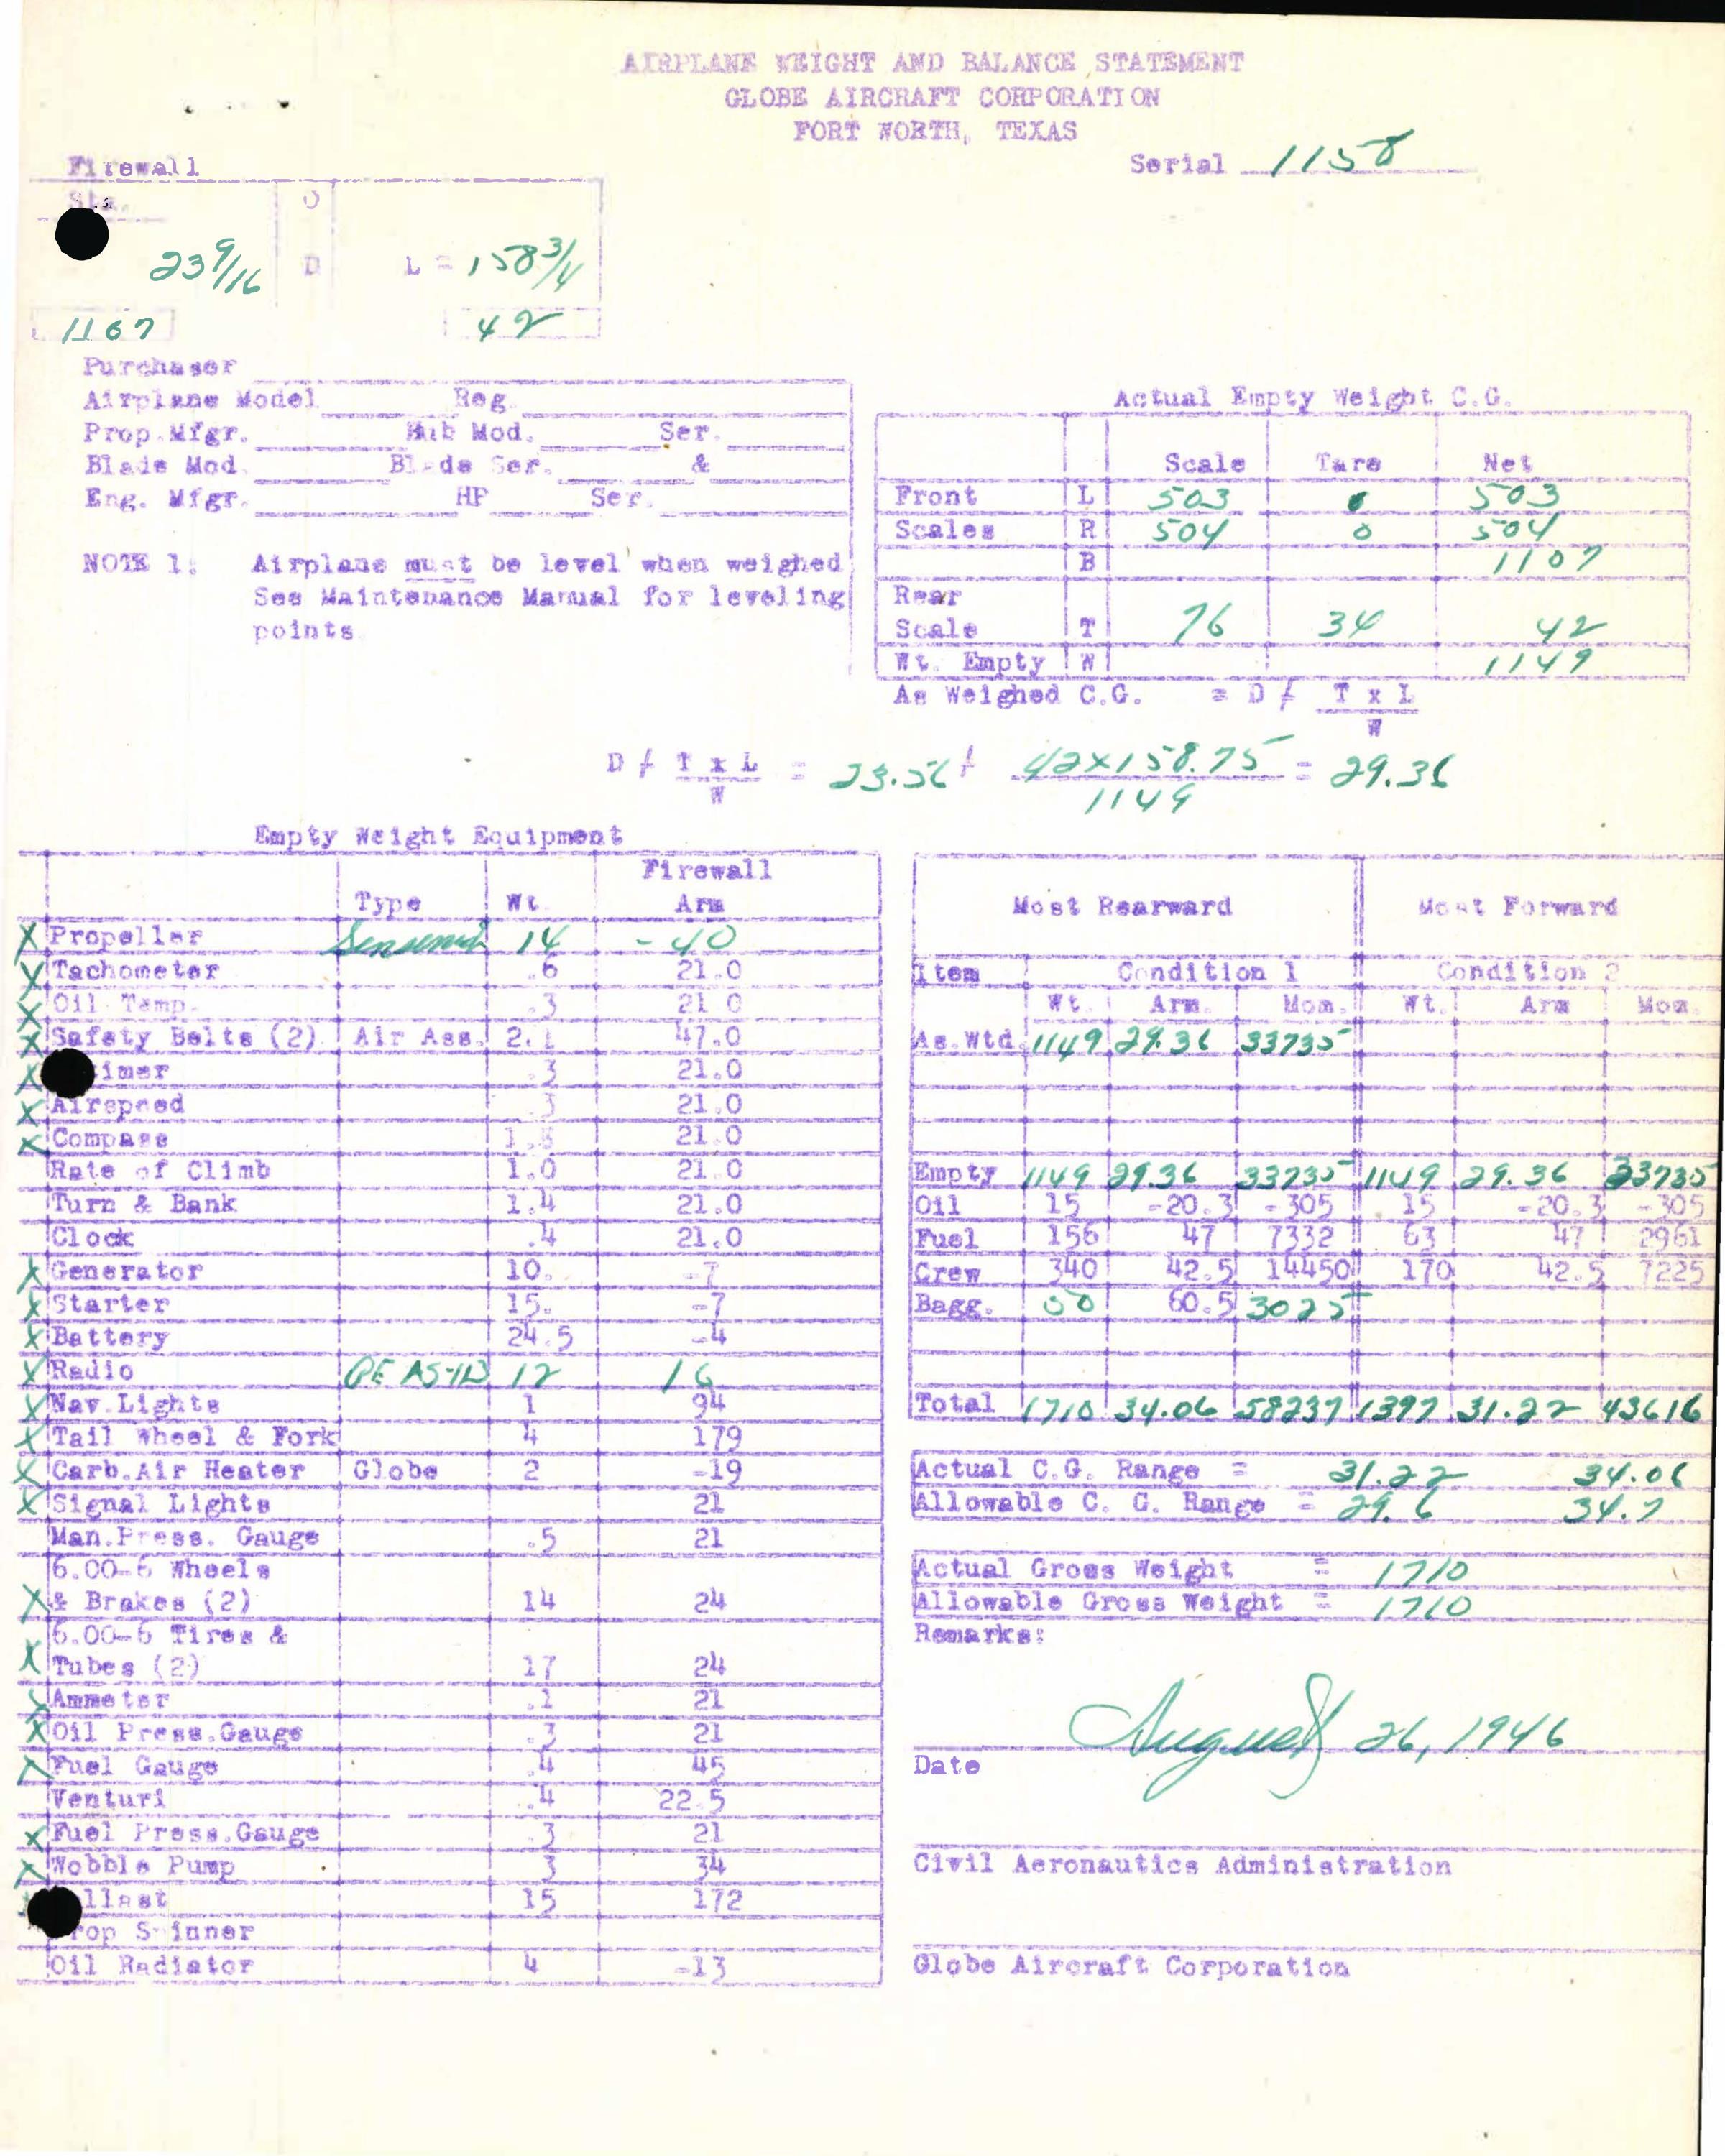 AIRPLANE WEIGHT AND BALANCE STATEMENT
GLOBE AIRCRAFT CORPORATION
FORT WORTH, TEXAS
Serial 1158
Firewall
Sta. O
23 9/16 D L = 158 3/4
1107 42
Purchaser
Airplane Model Reg.
Prop. Mfgr. Hub Mod. Ser.
Blade Mod. Blade Ser. &
Eng. Mfgr. HP Ser.
NOTE 1: Airplane must be level when weighed
See Maintenance Manual for leveling
points
Actual Empty Weight C.G.
Scale Tare Net
Front L 503 0 503
Scales R 504 0 504
B 1107
Rear
Scale T 76 34 42
Wt. Empty W 1149
As Weighed C.G. = D / T x L
W
D / T x L = 23.56 / 42x158.75 = 29.36
W 1149
Empty Weight Equipment
Firewall
Type Wt. Arm
X Propeller Sensenich 14 -40
X Tachometer .6 21.0
X Oil Temp. .3 21.0
X Safety Belts (2) Air Ass. 2.1 47.0
X imer .3 21.0
X Airspeed .3 21.0
X Compass 21.0
Rate of Climb 1.0 21.0
Turn & Bank 1.4 21.0
Clock .4 21.0
X Generator 10. -7
X Starter 15. -7
X Battery 24.5 -4
X Radio GE AS-1B 12 16
X Nav. Lights 1 94
X Tail Wheel & Fork 4 179
X Carb.Air Heater Globe 2 -19
X Signal Lights 21
Man.Press. Gauge .5 21
6.00-6 Wheels
X & Brakes (2) 14 24
6.00-6 Tires &
X Tubes (2) 17 24
X Ammeter .1 21
X Oil Press.Gauge .3 21
X Fuel Gauge .4 45
Venturi .4 22.5
X Fuel Press.Gauge .3 21
X Wobble Pump 3 34
llast 15 172
rop Spinner
Oil Radiator 4 -13
Most Rearward Most Forward
Item Condition 1 Condition 2
Wt. Arm. Mom. Wt. Arm Mom.
As Wtd. 1149 29.36 33735
Empty 1149 29.36 33735 1149 29.36 33735
Oil 15 -20.3 -305 15 -20.3 -305
Fuel 156 47 7332 63 47 2961
Crew 340 42.5 14450 170 42.5 7225
Bagg. 50 60.5 3025
Total 1710 34.06 58237 1397 31.22 43616
Actual C.G. Range = 31.22 34.06
Allowable C. G. Range = 29.6 34.7
Actual Gross Weight = 1710
Allowable Gross Weight = 1710
Remarks:
August 26, 1946
Date
Civil Aeronautics Administration
Globe Aircraft Corporation